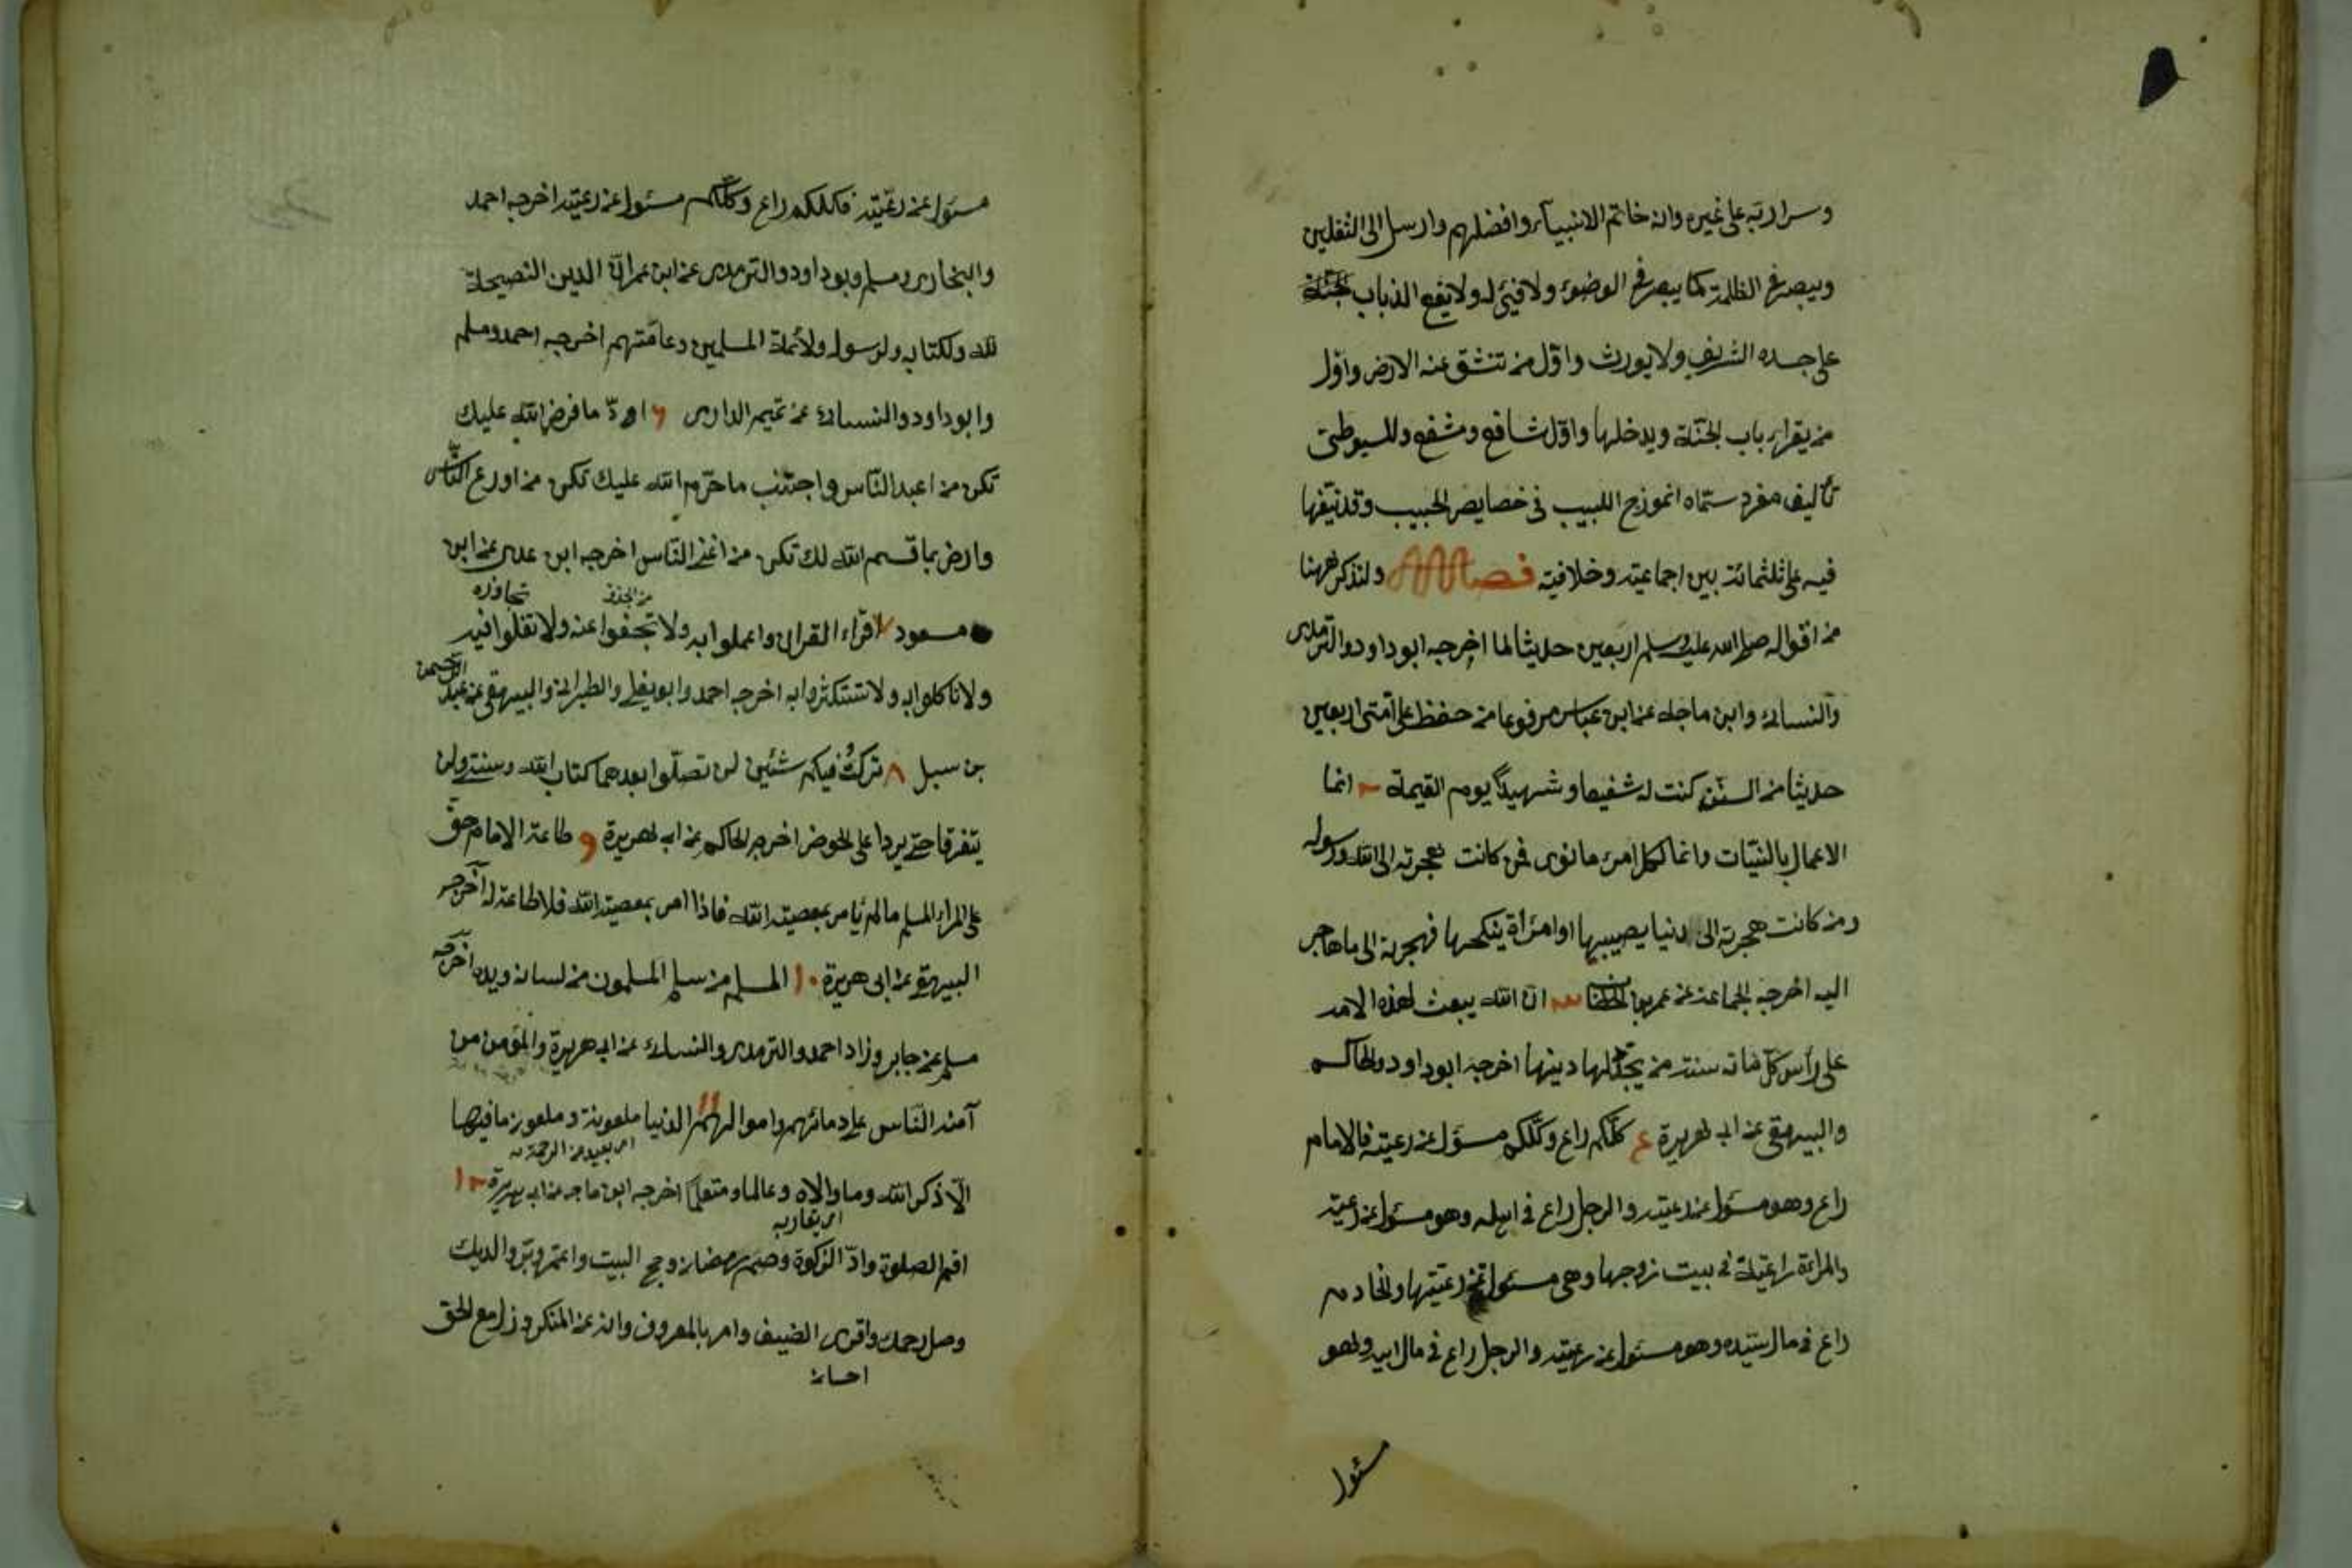 وسراريه على غيره وانه خاتم الانبيآء وافضلهم وارسل الى الثقلين
ويبصر في الظلمة كما يبصر في الوضوء ولا فيئ له ولا يقع الذباب
على جسده الشريف ولا يورث واوّل من تنشق عنه الارض واوّل
من يقرار باب الجنّة ويدخلها واوّل شافع ومشفع وللسيوطى
تأليف مفرد سمّاه انموزج اللبيب فى خصايص الحبيب وقد نيّفها
فيه على ثلثمائة بين اجماعية وخلافية فصل ولنذكر ههنا
من اقواله صلى الله عليه وسلم اربعين حديثا لما اخرجه ابوداود والترمذى
والنسائى وابن ماجه عن ابن عباس مرفوعا من حفظ على امّتى اربعين
حديثا من السنن كنت له شفيعا وشهيدًا يوم القيمة ٢ انما
الاعمال بالنيّات وانما لكل امرئ ما نوى فمن كانت هجرته الى الله ورسوله
ومن كانت هجرته الى دنيا يصيبها او امرأة ينكحها فهجرته الى ما هاجر
اليه اخرجه الجماعة عن عمر بن الخطاب ٣ انّ الله يبعث لهذه الامه
على رأس كلّ مائة سنة من يجدّد لها دينها اخرجه ابوداود والحاكم
والبيهقى عن ابى هريرة ع كلّكم راع وكلّكم مسؤل عن رعيته فالامام
راع وهو مسئول عن رعيته والرجل راع فى اهله وهو مسئول عن رعيته
والمراءة راعية فى بيت زوجها وهى مسئولة عن رعيّتها والخادم
راع فى مال سيّده وهو مسئول عن رعيته والرجل راع فى مال ابيه وهو
مسئول
مسئول عن رعيّته فكلكم راع وكلّكم مسئول عن رعيّته اخرجه احمد
والبخارى ومسلم وبوداود والترمذى عن ابن عمر انّ الدين النصيحة
لله ولكتابه ولرسوله ولأئمة المسلمين وعامّتهم اخرجه احمد ومسلم
وابوداود والنسائى عن تميم الدارى ٦ ادّ ما فرض الله عليك
تكن من اعبد النّاس واجتنب ما حرّم الله عليك تكن من اورع النّاس
وارض بما قسم الله لك تكن من اغنى النّاس اخرجه ابن عدى عن ابن
من الجفو تجاوزه
مسعود ٧ اقراء القران واعملوا به ولا تجفوا عنه ولا تغلوا فيه
ولا تاكلوا به ولا تستكثروا به اخرجه احمد وابويعلى والطبرانى والبيهقى عن عبد الرحمن
بن سبل ٨ تركتُ فيكم شئين لن تضلّوا بعدهما كتاب الله وسنتى ولن
يتفرقا حتى يردا على الحوض اخرجه الحاكم عن ابى هريرة ٩ طاعة الامام حق
على المراء المسلم مالم يأمر بمعصية الله فاذا امر بمعصية الله فلا طاعة له اخرجه
البيهقى عن ابى هريرة ١٠ المسلم من سلم المسلمون من لسانه ويده اخرجه
مسلم عن جابر وزاد احمد والترمذى والنسائى عن ابى هريرة والمؤمن من
آمنه النّاس على دمائهم واموالهم ١١ الدّنيا ملعونة وملعون ما فيها
اى بعيد عن الرحمة
الّا ذكر الله وما والاه وعالما ومتعلّما اخرجه ابن ماجه عن ابى هريرة ١٢
اى يقاربه
اقم الصلوة وادّ الزكوة وصم رمضان وحج البيت واعتمر وبرّ والديك
وصل رحمك واقرى الضيف وامر بالمعروف وانه عن المنكر وزل مع الحق
احسان